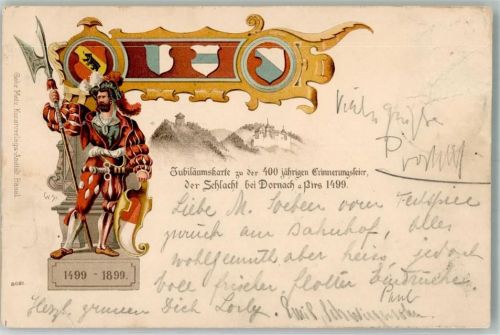 Gebr. Metz, Kunstverlags-Anstalt Basel.
Viele Grüsse
Jubiläumskarte zu der 400 jährigen Erinnerungsfeier,
der Schlacht bei Dornach a/Birs 1499.
Liebe M. soeben vom Festspiel
zurück am Bahnhof, alles
wohlgemuth aber heiss, jedoch
voll frischer, flotter Eindrücke.
Paul
Herzl. grüssen Dich
Emil
1499 - 1899.